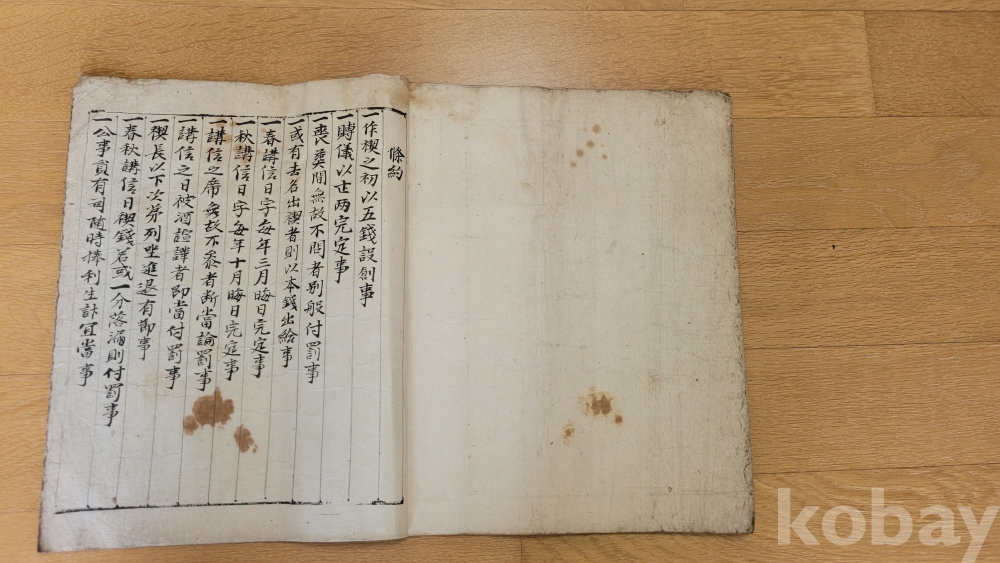 條約
一作稧之初以五錢設創事
一賻儀以廿两完定事
一喪葬間無故不問者別般付罰事
一或有去名出稧者則以本錢出給事
一春講信日字每年三月晦日完定事
一秋講信日字每年十月晦日完定事
一講信之席無故不叅者斷當論罰事
一講信之日被酒諠譁者即當付罰事
一稧長以下次第列坐進退有節事
一春秋講信日稧錢若或一分落漏則付罰事
一公事員有司隨時捧利生計宜當事
kobay